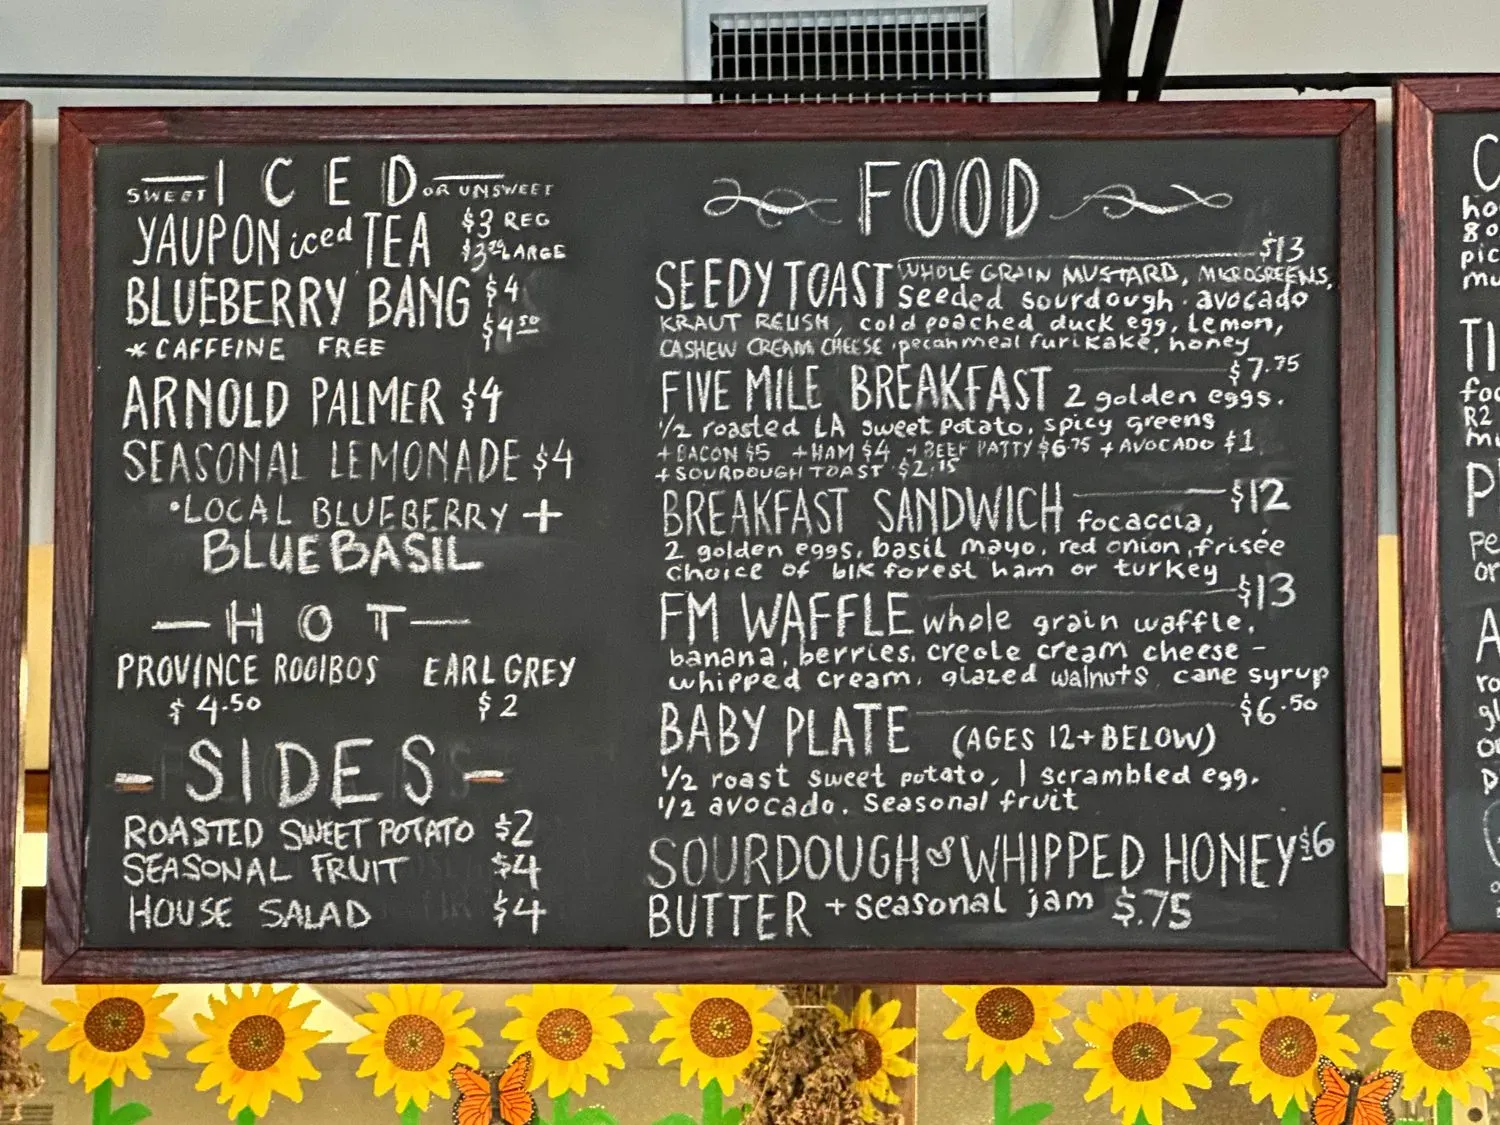 SWEET ICED OR UNSWEET
YAUPON iced TEA $3 REG
LARGE
BLUEBERRY BANG $4
$4.50
* CAFFEINE FREE
ARNOLD PALMER $4
SEASONAL LEMONADE $4
•LOCAL BLUEBERRY +
BLUE BASIL
—HOT—
PROVINCE ROOIBOS EARL GREY
$4.50 $2
- SIDES -
ROASTED SWEET POTATO $2
SEASONAL FRUIT $4
HOUSE SALAD $4
FOOD
$13
SEEDY TOAST WHOLE GRAIN MUSTARD, MICROGREENS,
seeded sourdough . avocado
KRAUT RELISH, cold poached duck egg, lemon,
CASHEW CREAM CHEESE, pecanmeal furikake, honey
$7.75
FIVE MILE BREAKFAST 2 golden eggs,
1/2 roasted LA sweet potato, spicy greens
+ BACON $5 + HAM $4 + BEEF PATTY $6.75 + AVOCADO $1
+ SOURDOUGH TOAST $2.15
BREAKFAST SANDWICH $12
focaccia,
2 golden eggs, basil mayo, red onion, frisée
choice of blk forest ham or turkey
$13
FM WAFFLE whole grain waffle,
banana, berries, creole cream cheese -
whipped cream, glazed walnuts cane syrup
$6.50
BABY PLATE (AGES 12 + BELOW)
1/2 roast sweet potato, 1 scrambled egg,
1/2 avocado, seasonal fruit
SOURDOUGH & WHIPPED HONEY $6
BUTTER + seasonal jam $.75